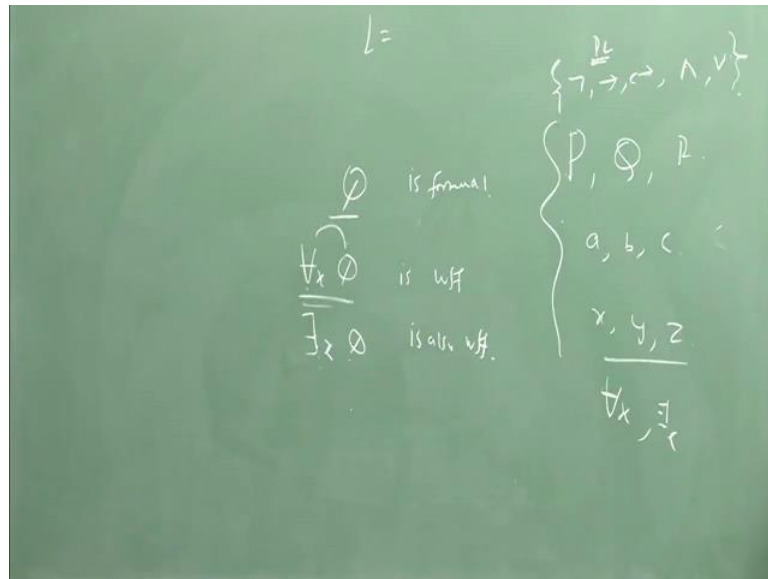 L =
PL
{¬, →, ↔, ∧, ∨}.
P, Q, R.
a, b, c.
x, y, z.
∀x, ∃x
φ is formual.
∀x φ is wff
∃x φ is also wff.